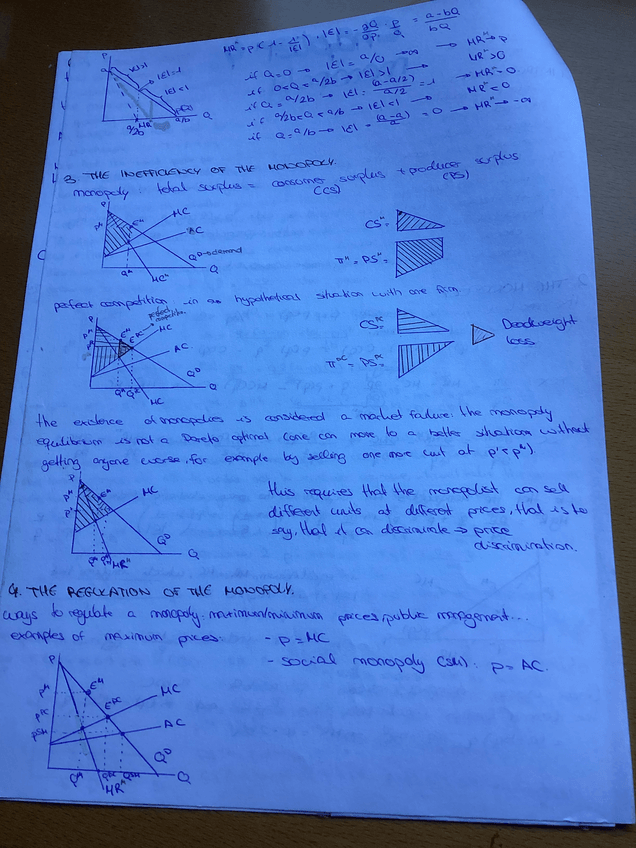 MR^M = P(1 - 1/|E|), |E| = -∂Q/∂P · P/Q = (a-bQ)/bQ
if Q=0 → |E| = a/0 → ∞ → MR^M → P
if 0<Q<a/2b → |E|>1 → MR^M>0
if Q = a/2b → |E| = (a-a/2)/(a/2) = 1 → MR^M=0
if a/2b<Q<a/b → |E|<1 → MR^M<0
if Q=a/b → |E| = (a-a)/a = 0 → MR^M → -∞
P
a
|E|>1
|E|=1
|E|<1
a/2b MR^M a/b Q
3. THE INEFFICIENCY OF THE MONOPOLY.
monopoly: total surplus = consumer surplus + producer surplus
(CS) (PS)
P
P^M E^M MC
AC
Q^D→demand
Q^M MC^M Q
CS^M =
π^M = PS^M =
perfect competition in a hypothetical situation with one firm.
P
P^M E^M E^PC → perfect competition
MC
AC
Q^D
Q^M Q^PC MC Q
CS^PC =
π^PC = PS^PC =
Deadweight
loss
the existence of monopolies is considered a market failure: the monopoly
equilibrium is not a Pareto optimal (one can move to a better situation without
getting anyone worse, for example by selling one more unit at p'<p^M)
P
P^M E^M MC
P'
Q^D
Q^M MR^M Q
this requires that the monopolist can sell
different units at different prices, that is to
say, that it can discriminate ⇒ price
discrimination.
4. THE REGULATION OF THE MONOPOLY.
ways to regulate a monopoly: maximum/minimum prices, public management...
examples of maximum prices: - p = MC
- social monopoly (SM): p = AC.
P
P^M E^M
P^PC E^PC MC
P^SM AC
Q^D
Q^M Q^PC Q^SM Q
MR^M